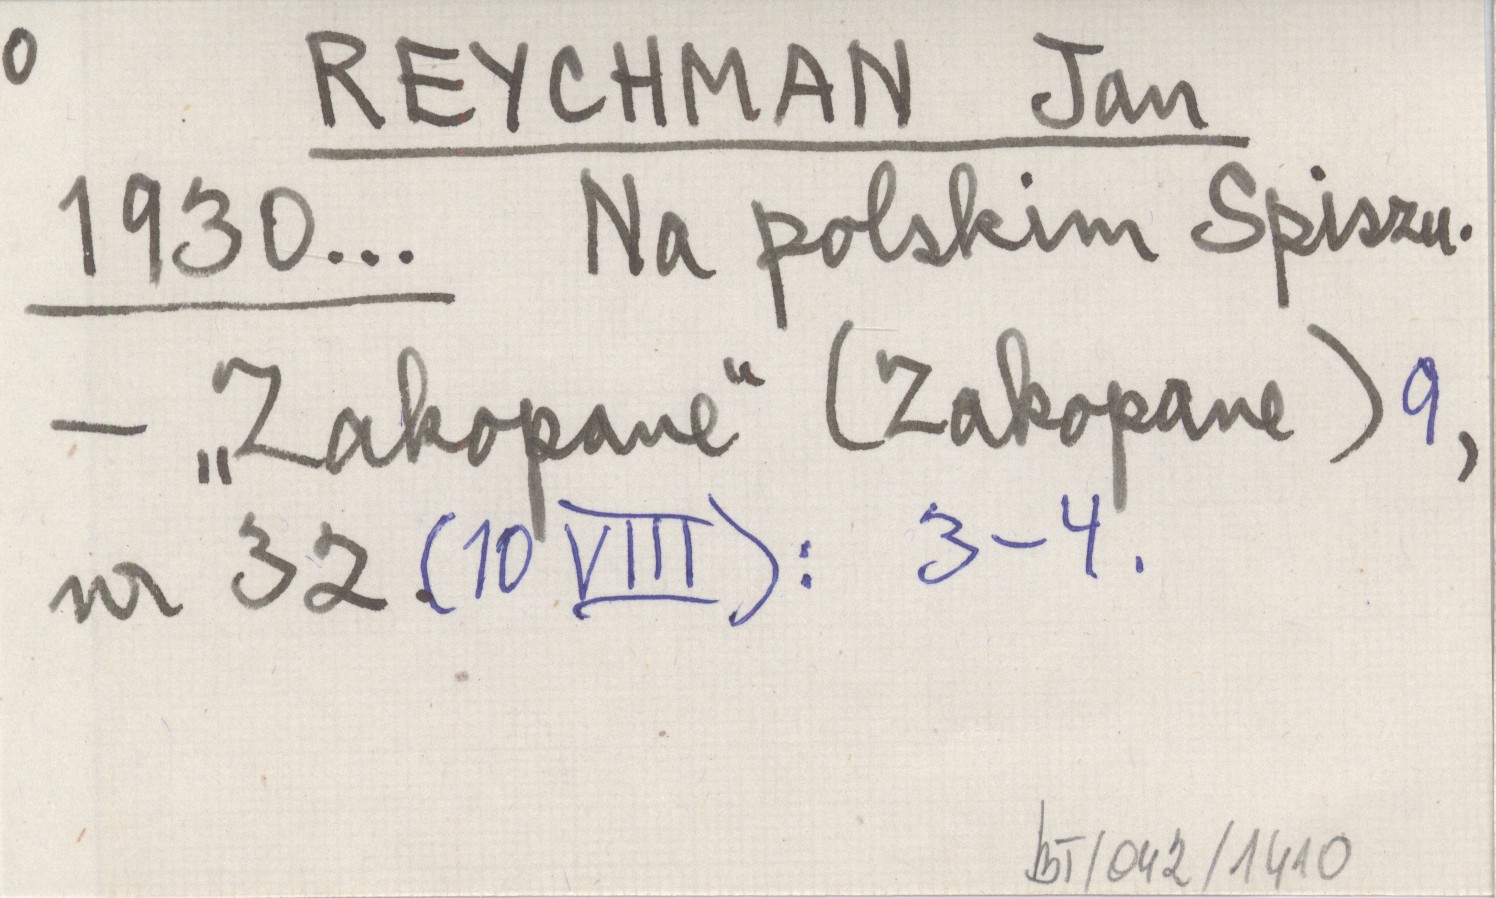 0
REYCHMAN Jan
1930... Na polskim Spiszu.
— „Zakopane“ (Zakopane) 9,
nr 32. (10 VIII): 3–4.
bT/042/1410